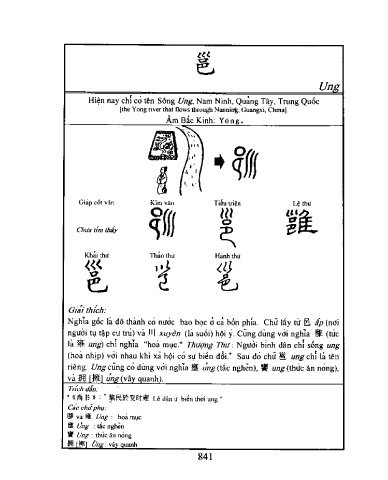 邕
Ung
Hiện nay chỉ có tên Sông Ung, Nam Ninh, Quảng Tây, Trung Quốc
[the Yong river that flows through Nanning, Guangxi, China]
Âm Bắc Kinh: Yōng.
Giáp cốt văn Kim văn Tiểu triện Lệ thư
Chưa tìm thấy
Khải thư Thảo thư Hành thư
邕
Giải thích:
Nghĩa gốc là đô thành có nước bao bọc ở cả bốn phía. Chữ lấy từ 邑 ấp (nơi
người tụ tập cư trú) và 川 xuyên (là suối) hội ý. Cũng dùng với nghĩa 雍 (tức
là 雍 ung) chỉ nghĩa "hoà mục." Thượng Thư: Người bình dân chỉ sống ung
(hoà nhịp) với nhau khi xã hội có sự biến đổi." Sau đó chữ 邕 ung chỉ là tên
riêng. Ung cũng có dùng với nghĩa 壅 ủng (tắc nghẽn), 饔 ung (thức ăn nóng),
và 拥 [擁] ủng (vây quanh).
Trích dẫn:
"《尚书》: 黎民於变时雍 Lê dân ư biến thời ung."
Các chữ phụ:
và 雍 Ung : hoà mục
壅 Ủng : tắc nghẽn
饔 Ung : thức ăn nóng
拥 [擁] Ủng : vây quanh
841